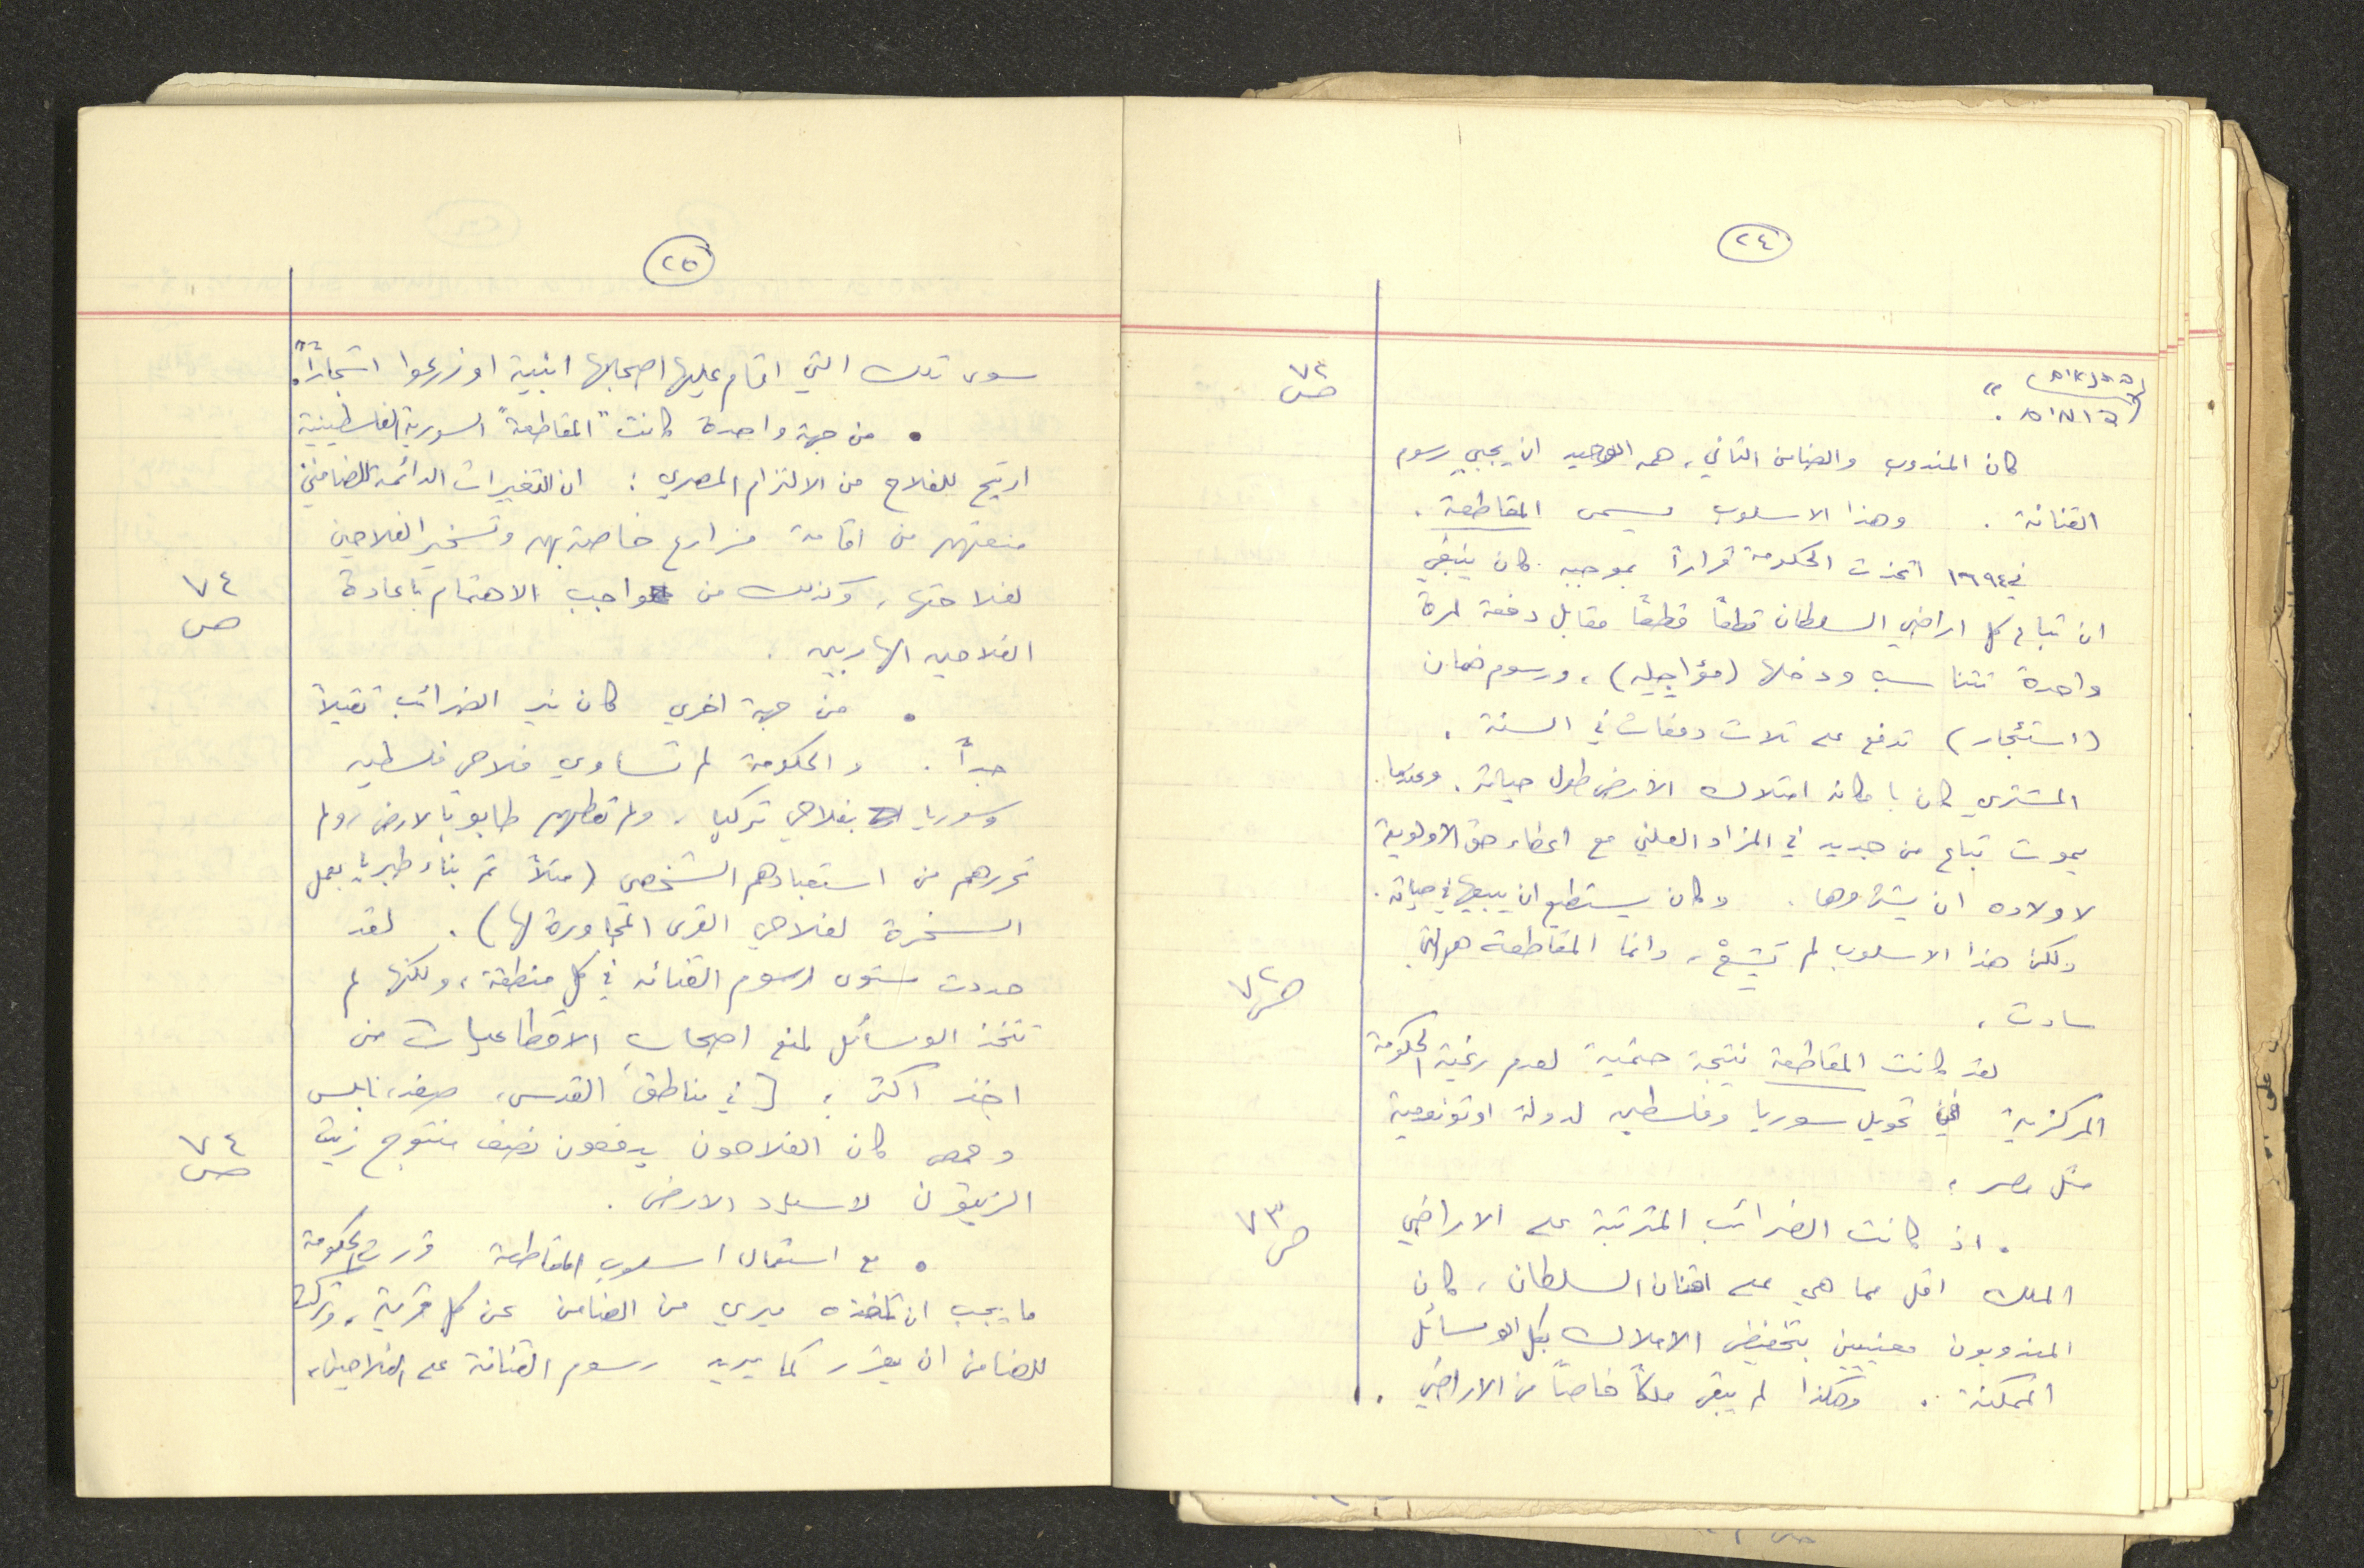 ٢٤
ص ٧٢
كان المندوب والضامن الثاني، همه الوحيد ان يجبي رسوم
القنانة . وهذا الاسلوب يسمى المقاطعة .
في ١٦٩٤ اتخذت الحكومة قراراً بموجبه كان ينبغي
ان تباع كل اراضي السلطان قطعاً قطعاً مقابل دفعة لمرة
واحدة تتناسب ودخلها (مؤاجيله) ، ورسوم ضمان
(استئجار) تدفع على ثلاث دفعات في السنة .
المشتري كان بامكانه امتلاك الارض طول حياته . وعندما
يموت تباع من جديد في المزاد العلني مع اعطاء حق الاولوية
لاولاده ان يشتروها . وكان يستطيع ان يبيعها في حياته .
ولكن هذا الاسلوب لم يَشِعْ ، وانما المقاطعة هي التي
سادت .
ص ٧٢
لقد كانت المقاطعة نتيجة حتمية لعدم رغبة الحكومة
المركزية في تحويل سوريا وفلسطين لدولة اوتونومية
مثل مصر .
ص ٧٣
. اذ كانت الضرائب المترتبة على الاراضي
الملك اقل مما هي على اقنان السلطان ، كان
المندوبون معنيين بتخفيض الاملاك بكل الوسائل
الممكنة .. وهكذا لم يبق ملكاً خاصاً من الاراضي .
٢٥
سوى تلك التي اقام عليها اصحابها ابنية او زرعوا اشجاراً" .
• من جهة واحدة كانت "المقاطعة" السورية الفلسطينية
اريح للفلاح من الالتزام المصري : ان التغييرات الدائمة للضامنين
منعتهم من اقامة مزارع خاصة بهم وتسخير الفلاحين
لفلاحتها ، وكذلك من واجب الاهتمام باعادة
الفلاحين الهاربين .
ص ٧٤
• من جهة اخرى كان نير الضرائب ثقيلاً
جداً . والحكومة لم تساوي فلاحي فلسطين
وسوريا بفلاحي تركيا ، ولم تعطهم طابو بالارض ولم
تحررهم من استعبادهم الشخصي (مثلاً تم بناء طبريا بعمل
السخرة لفلاحي القرى المجاورة لها) . لقد
حددت مستوى رسوم القنانه في كل منطقة ، ولكنها لم
تتخذ الوسائل لمنع اصحاب الاقطاعيات من
اخذ اكثر . [في مناطق القدس ، صفد ، نابلس
وحمص كان الفلاحون يدفعون نصف منتوج زيت
الزيتون لاسياد الارض .
ص ٧٤
• مع استعمال اسلوب المقاطعة قررت الحكومة
ما يجب ان تأخذه ميري من الضامن عن كل قرية ، وتركت
للضامن ان يقرر كما يريد رسوم القنانة على الفلاحين ،